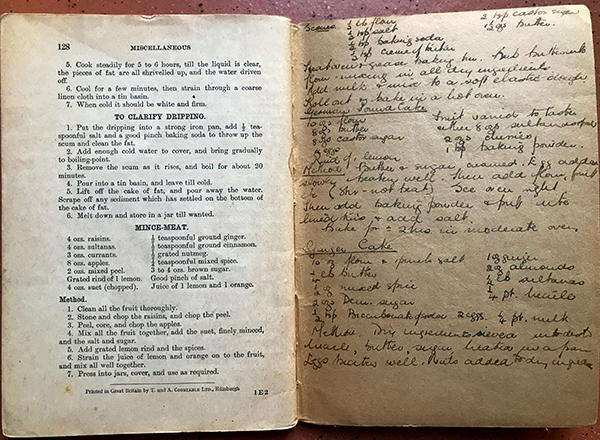 128 MISCELLANEOUS
5. Cook steadily for 5 to 6 hours, till the liquid is clear,
the pieces of fat are all shrivelled up, and the water driven
off.
6. Cool for a few minutes, then strain through a coarse
linen cloth into a tin basin.
7. When cold it should be white and firm.
TO CLARIFY DRIPPING.
1. Put the dripping into a strong iron pan, add ½ tea-
spoonful salt and a good pinch baking soda to throw up the
scum and clean the fat.
2. Add enough cold water to cover, and bring gradually
to boiling-point.
3. Remove the scum as it rises, and boil for about 20
minutes.
4. Pour into a tin basin, and leave till cold.
5. Lift off the cake of fat, and pour away the water.
Scrape off any sediment which has settled on the bottom of
the cake of fat.
6. Melt down and store in a jar till wanted.
MINCE-MEAT.
4 ozs. raisins.
4 ozs. sultanas.
3 ozs. currants.
8 ozs. apples.
2 ozs. mixed peel.
Grated rind of 1 lemon.
4 ozs. suet (chopped).
teaspoonful ground ginger.
teaspoonful ground cinnamon.
grated nutmeg.
teaspoonful mixed spice.
3 to 4 ozs. brown sugar.
Good pinch of salt.
Juice of 1 lemon and 1 orange.
Method.
1. Clean all the fruit thoroughly.
2. Stone and chop the raisins, and chop the peel.
3. Peel, core, and chop the apples.
4. Mix all the fruit together, add the suet, finely minced,
and the salt and sugar.
5. Add grated lemon rind and the spices.
6. Strain the juice of lemon and orange on to the fruit,
and mix all well together.
7. Press into jars, cover, and use as required.
Printed in Great Britain by T. and A. CONSTABLE LTD., Edinburgh
1E2
Scones ½ lb flour
salt
baking soda
cream of tartar
castor sugar
butter.
grease baking tin. Rub butter into
flour mixing in all dry ingredients
Add milk & mix to a soft elastic dough
Roll out & bake in a hot oven.
Pound Cake
10 ozs flour
8 ozs butter
8 ozs castor sugar
rind of lemon
Fruit varied to taste
either 8 ozs sultanas
2 ozs
baking powder.
Method: Butter & sugar creamed. Eggs added
slowly beaten well. Then add flour, fruit
over night.
Then add baking powder & put into
tins & add salt.
Bake for 2 hrs in moderate oven.
Ginger Cake
10 oz flour & pinch salt
butter
mixed spice
2 ozs Dem. sugar
Bicarbonate of soda 2 eggs.
ginger
2 ozs almonds
¼ lb sultanas
¼ pt. treacle
¼ pt. milk
Method: Dry ingredients sieved into basin
treacle, butter, sugar heated in a pan
Eggs beaten well. added to dry ingred.